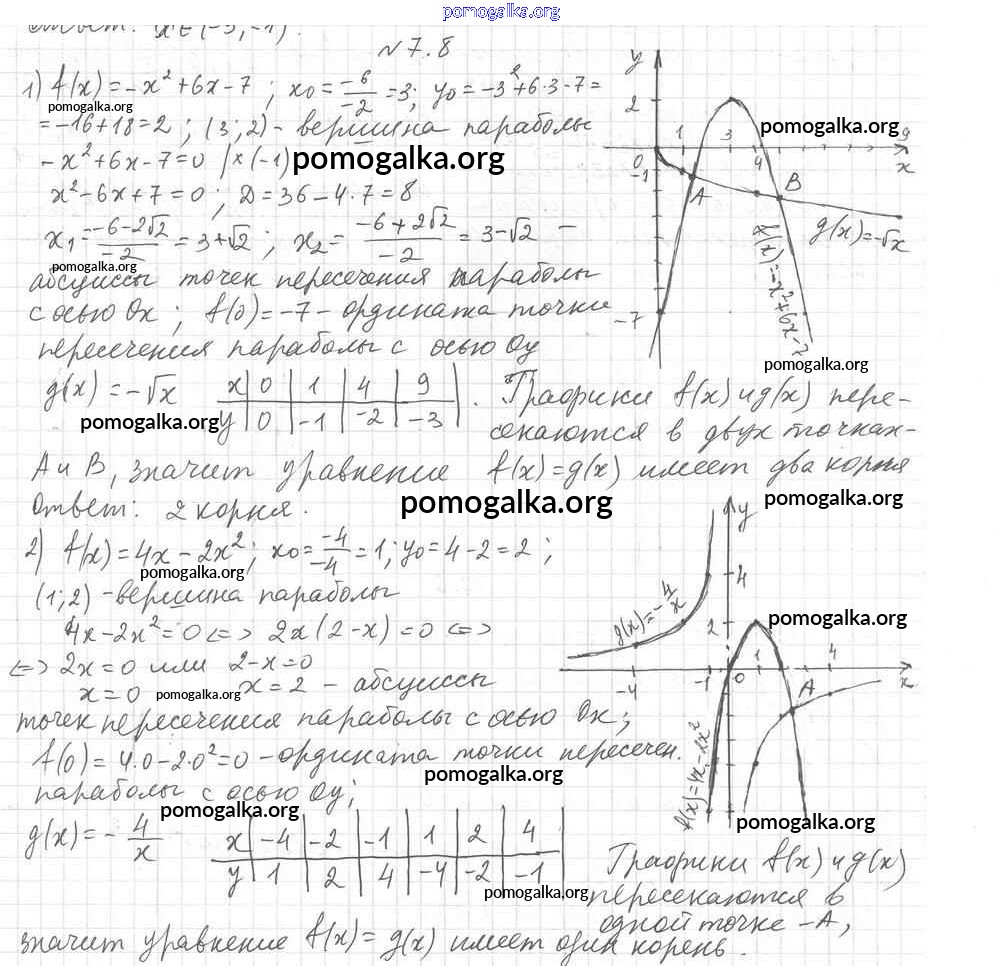 pomogalka.org
Ответ: x ∈ (-3; -1).
№7.8
1) f(x) = -x² + 6x - 7 ; x₀ = -6/-2 = 3; y₀ = -3² + 6·3 - 7 =
pomogalka.org
= -16 + 18 = 2 ; (3; 2) - вершина параболы
-x² + 6x - 7 = 0 |×(-1)
pomogalka.org
x² - 6x + 7 = 0 ; D = 36 - 4·7 = 8
x₁ = -6-2√2/-2 = 3+√2 ; x₂ = -6+2√2/-2 = 3-√2 -
pomogalka.org
абсциссы точек пересечения параболы
с осью Ox ; f(0) = -7 - ордината точки
пересечения параболы с осью Oy
y
2
1
3
pomogalka.org
9
0
-1
4
x
A
B
g(x) = -√x
f(x) = -x² + 6x - 7
-7
pomogalka.org
g(x) = -√x
x 0 1 4 9
y 0 -1 -2 -3
pomogalka.org
. Графики f(x) и g(x) пере-
секаются в двух точках -
A и B, значит уравнение f(x) = g(x) имеет два корня
Ответ: 2 корня.
pomogalka.org
pomogalka.org
2) f(x) = 4x - 2x² ; x₀ = -4/-4 = 1 ; y₀ = 4 - 2 = 2 ;
pomogalka.org
(1; 2) - вершина параболы
4x - 2x² = 0 <=> 2x(2-x) = 0 <=>
<=> 2x = 0 или 2-x = 0
x = 0 pomogalka.org x = 2 - абсциссы
точек пересечения параболы с осью Ox;
f(0) = 4·0 - 2·0² = 0 - ордината точки пересечен.
pomogalka.org
параболы с осью Oy;
pomogalka.org
y
4
g(x) = -4/x
2
pomogalka.org
-4
-1
0
1
A
4
x
f(x) = 4x - 2x²
pomogalka.org
g(x) = - 4/x
x -4 -2 -1 1 2 4
y 1 2 4 -4 -2 -1
pomogalka.org
Графики f(x) и g(x)
пересекаются в
одной точке - A,
значит уравнение f(x) = g(x) имеет один корень.